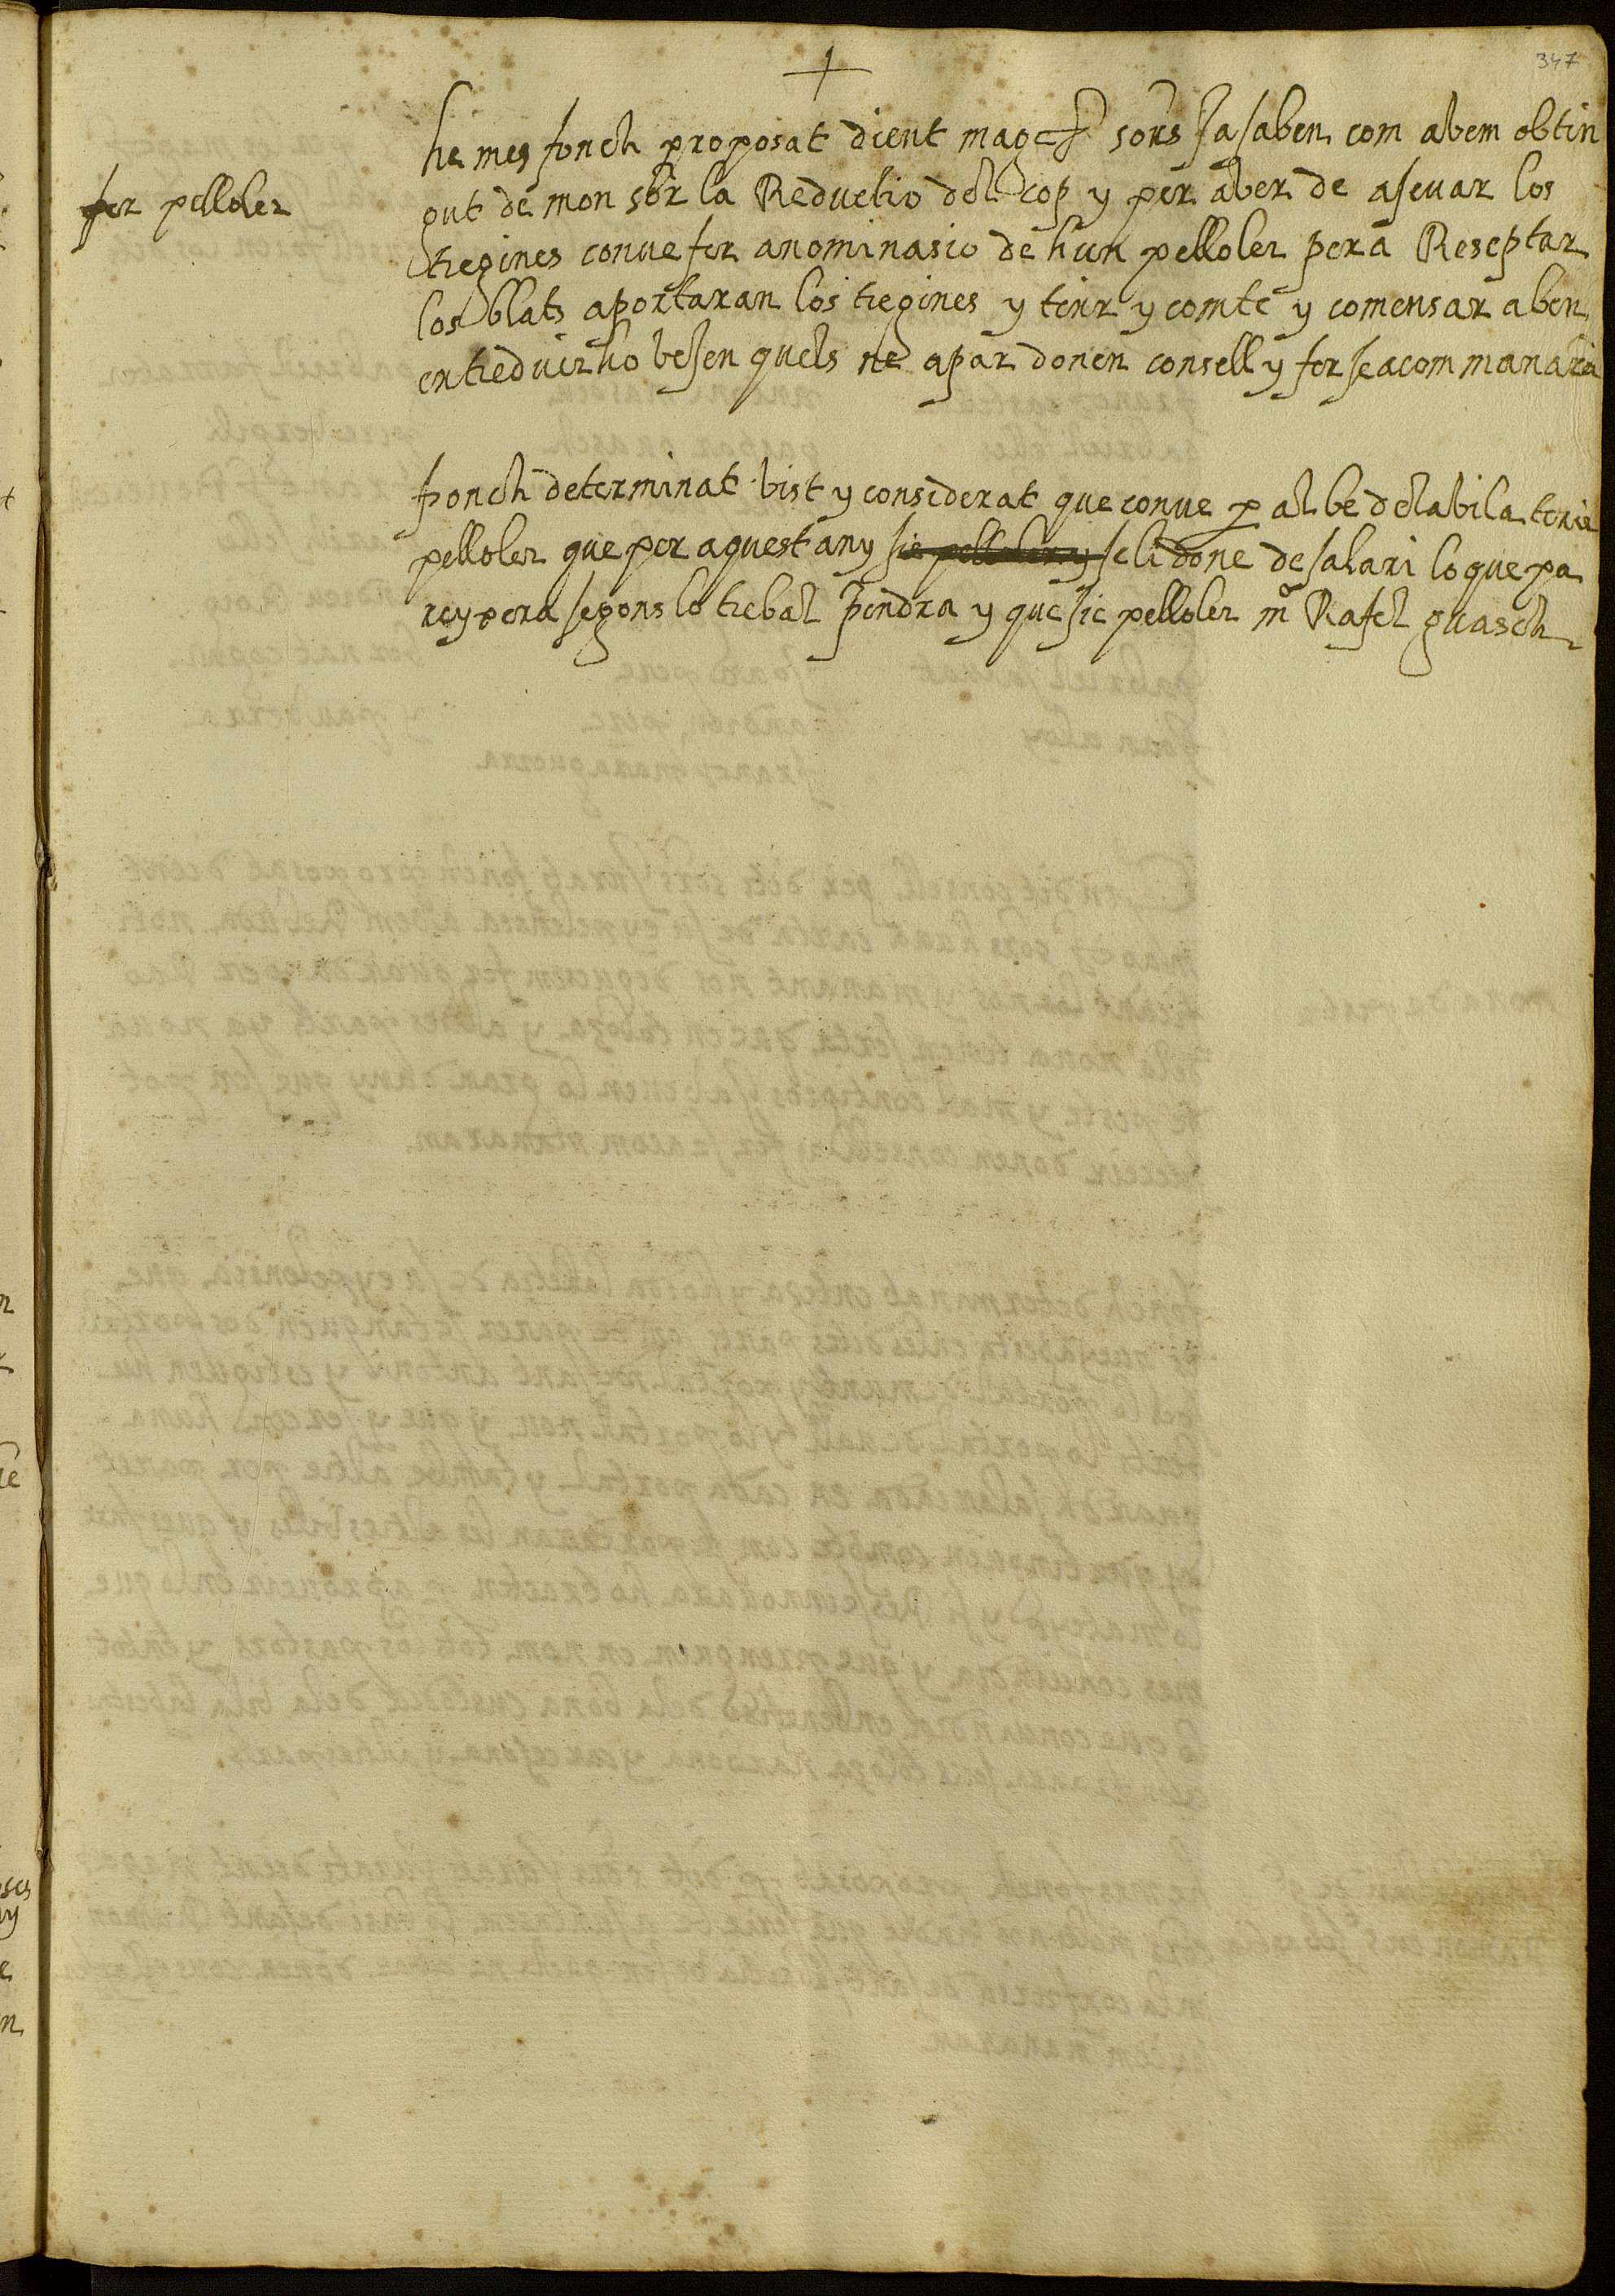 347
he mes fonch proposat dient magchs sors Ja saben com abem obtin
fer pelloler
gut de mon sor la Reductio del cop y per aber de aseuar los
tregines conue fer anominasio de hun pelloler pera Reseptar
los blats aportaran los tregines y tenir y comte y comensar aben
entreduir ho besen quels ne apar donen consell y fer se a com manara
fonch determinat bist y considerat que conue per al be de la bila tenir
pelloler que per aquest any sie pelloler y se li done de salari lo que pa
reyxera segons lo trebal pendra y que sie pelloler mo Rafel guasch